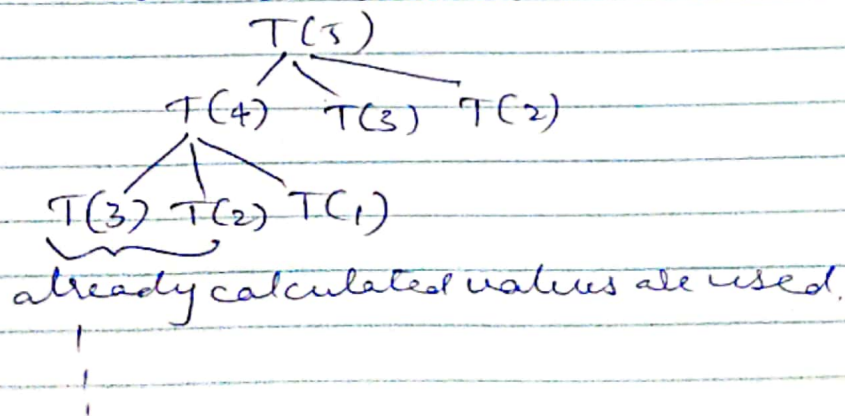 T(5)
T(4) T(3) T(2)
T(3) T(2) T(1)
already calculated values are used.